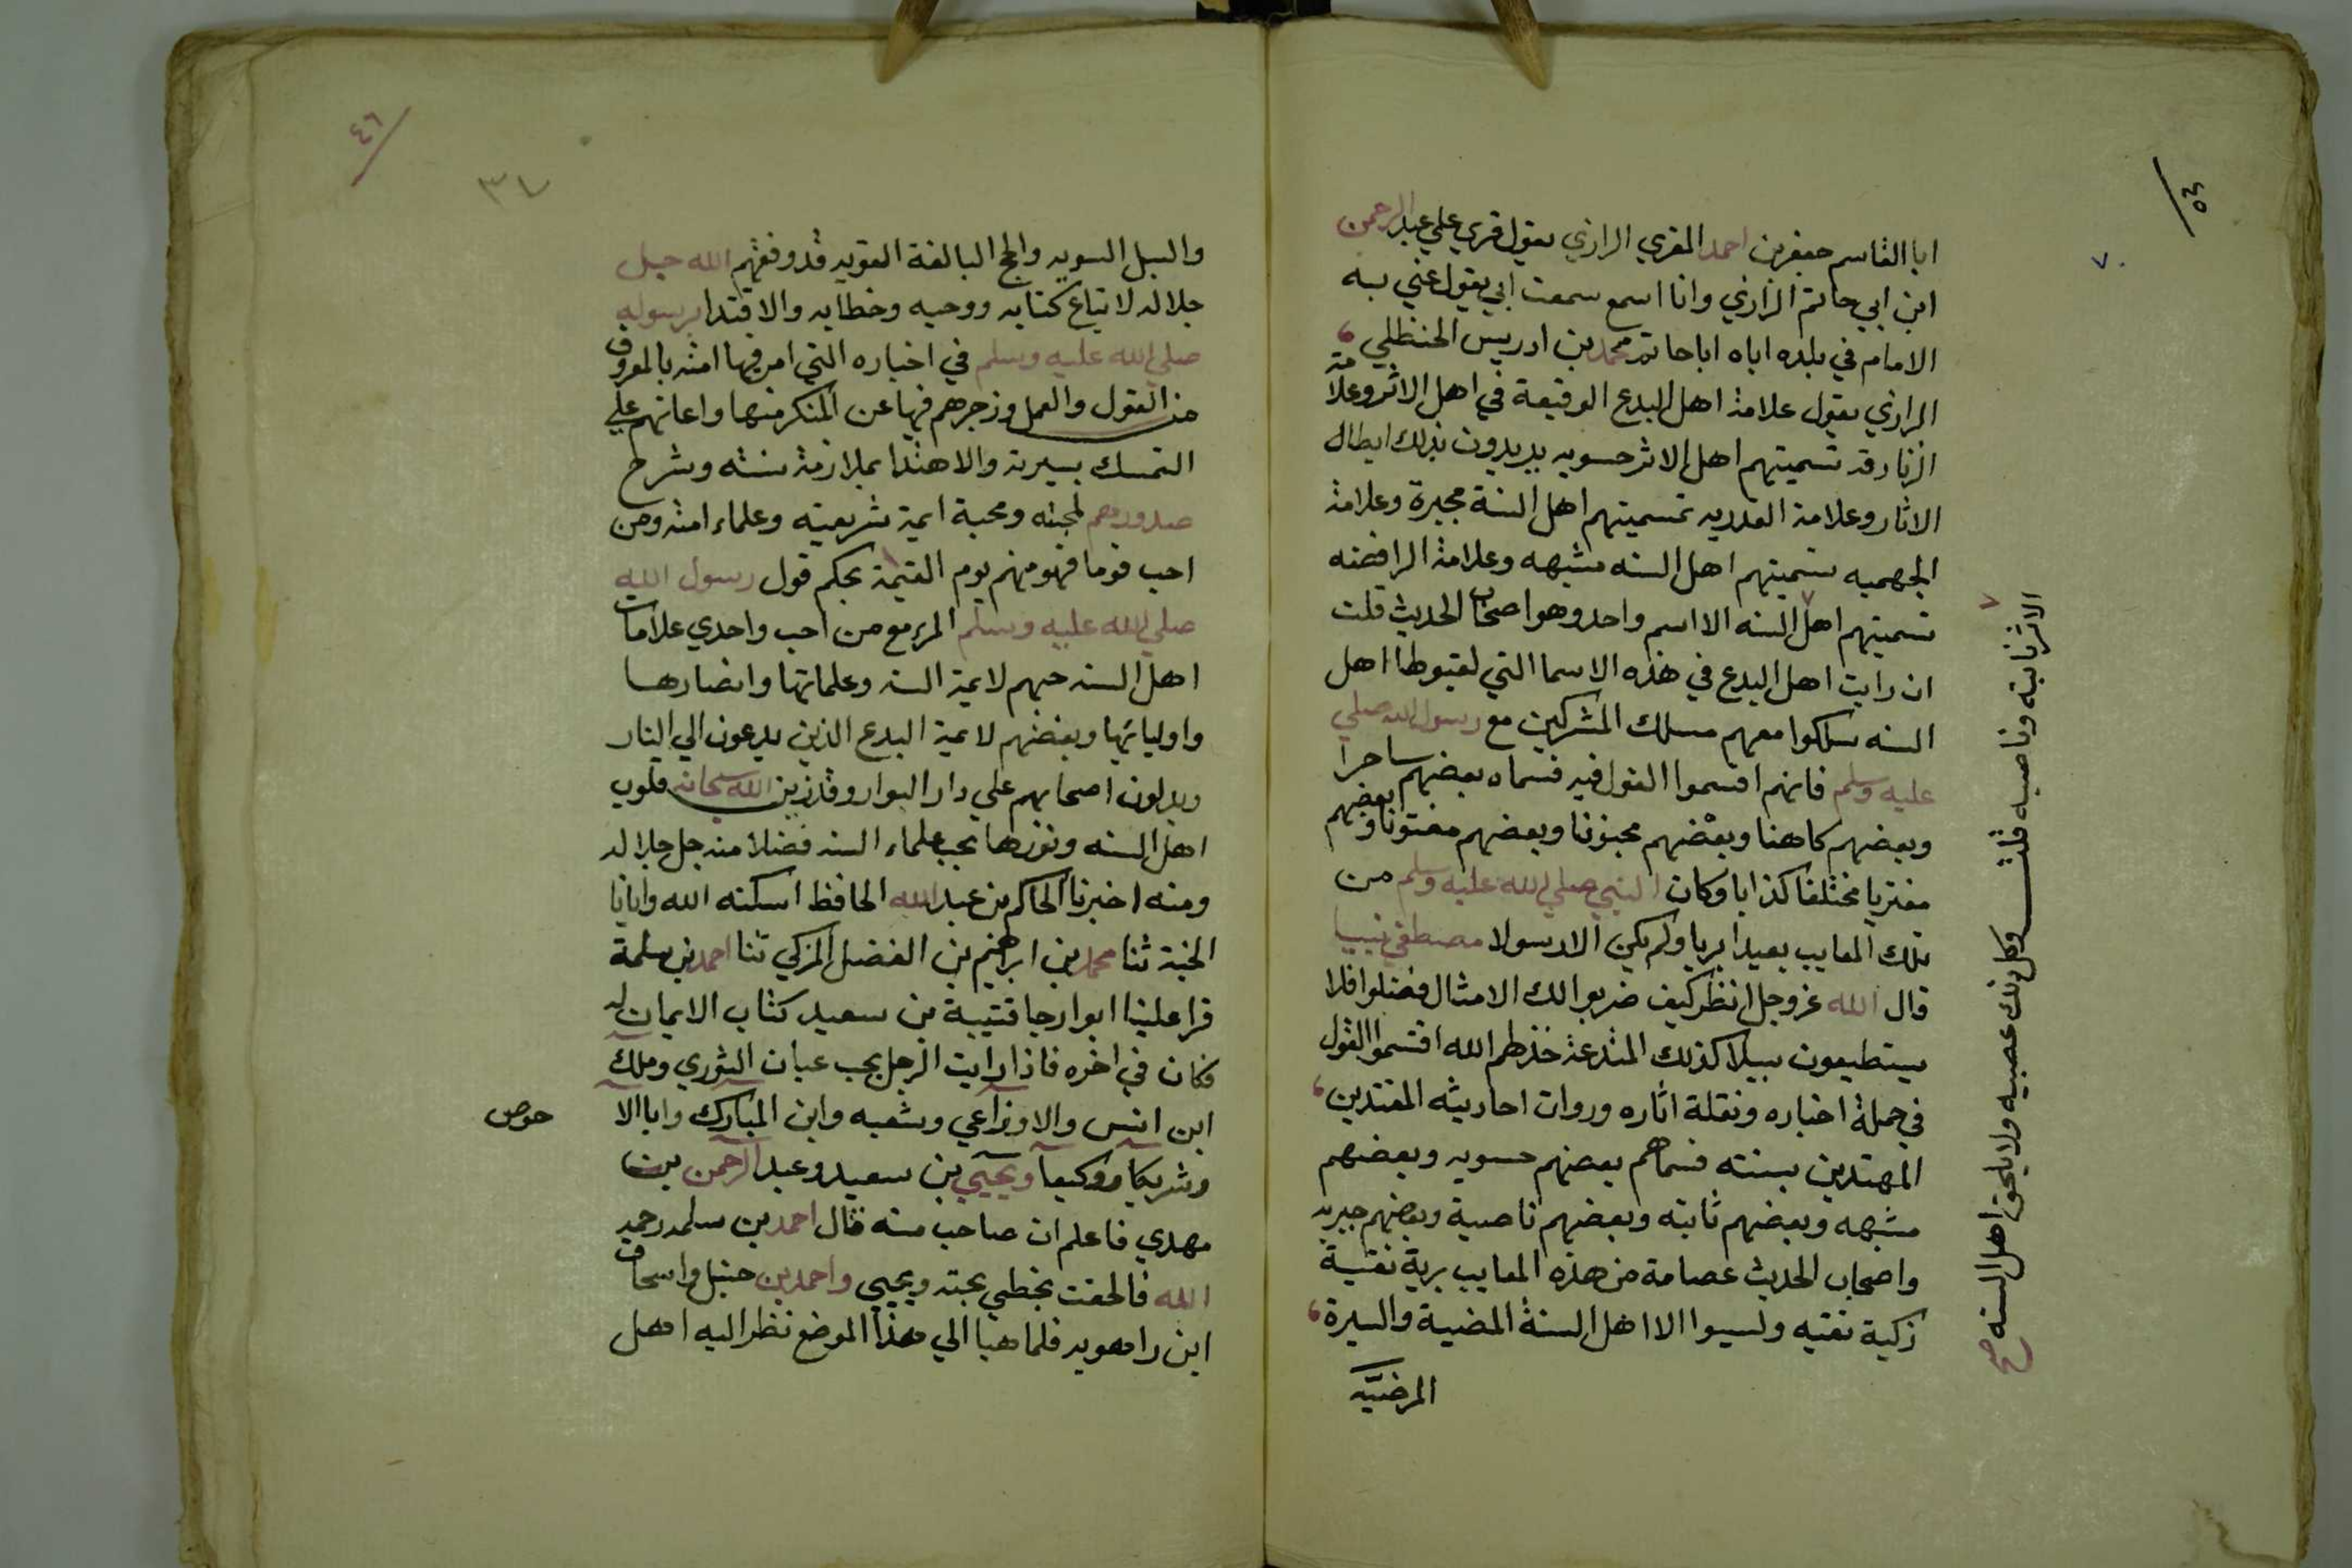 ابا القاسم جعفر بن احمد المقري الرازي يقول قري علي عبد الرحمن
ابن ابي حاتم الرازي وانا اسمع سمعت ابي يقول عني به
الامام في بلده اباه ابا حاتم محمد بن ادريس الحنظلي
الرازي يقول علامة اهل البدع الوقيعة في اهل الاثر وعلامة
الزنادقه تسميتهم اهل الاثر حسويه يريدون بذلك ابطال
الاثار وعلامة القدريه تسميتهم اهل السنة مجبرة وعلامة
الجهميه تسميتهم اهل السنه مشبهه وعلامة الرافضه
تسميتهم اهل السنه الا اسم واحد وهو اصحاب الحديث قلت
ان رايت اهل البدع في هذه الاسما التي لقبوطا اهل
السنه سلكوا معهم مسلك المشركين مع رسول الله صلي
عليه وسلم فانهم اقسموا القول فيه فسماه بعضهم ساحرا
وبعضهم كاهنا وبعضهم مجنونا وبعضهم مفتونا وبعضهم
مفتريا مختلقا كذابا وكان النبي صلي الله عليه وسلم من
تلك المعايب بعيدا بريا ولم يكن الا رسولا مصطفي نبيا
قال الله عز وجل انظر كيف ضربوا لك الامثال فضلوا فلا
يستطيعون سبيلا كذلك المبتدعة خذلهم الله اقتسموا القول
في جملة اخباره ونقلة اثاره وروات احاديثه المقتدين
المهتدين بسنته فسماهم بعضهم حسويه وبعضهم
مشبهه وبعضهم ثابته وبعضهم ناصبية وبعضهم جبريه
واصحاب الحديث عصامة من هذه المعايب برية نقية
زكية تقيه وليسوا الا اهل السنة المضية والسيرة
المرضيّه
الاثر ثابته وناصبه قلت وكل ذلك عصبيه ولا يلحق اهل السنه صح
٤٥
٧٠
٤٦
٣٧
والسبل السويه والحجج البالغة القويه قد وفقهم الله جل
جلاله لاتباع كتابه ووحيه وخطابه والاقتدا برسوله
صلي الله عليه وسلم في اخباره التي امر فيها امته بالمعروف
من القول والعمل وزجرهم فيها عن المنكر منها واعانهم علي
التمسك بسيرته والاهتدا بملازمة سنته وشرح
صدورهم لمحبته ومحبة ايمة شريعته وعلماء امته ومن
احب قوما فهو منهم يوم القيمة بحكم قول رسول الله
صلي الله عليه وسلم المرء مع من احب واحدي علامات
اهل السنه حبهم لايمة السنه وعلمائها وانصارها
واوليائها وبغضهم لايمة البدع الذين يدعون الي النار
ويدلون اصحابهم علي دار البوار وقد زين الله سبحانه قلوب
اهل السنه ونورها بحب علماء السنه فضلا منه جل جلاله
ومنه اخبرنا الحاكم بن عبد الله الحافظ اسكنه الله وايانا
الجنة ثنا محمد بن ابراهيم بن الفضل المزكي ثنا احمد بن سلمة
قرا علينا ابوا رجا قتيبة بن سعيد كتاب الايمان له
فكان في اخره فاذا رايت الرجل يحب عيان الثوري وملك
ابن انس والاوزاعي وشعبه وابن المبارك وابا الا
حوص
وشريكا ووكيعا ويحيي بن سعيد وعبد الرحمن بن
مهدي فاعلم ان صاحب سنه قال احمد بن سلمه رحمه
الله فالحقت بخطي تحته ويحيي واحمد بن حنبل واسحاق
ابن راهويه فلما هيا الي هذا الموضع نظر اليه اهل